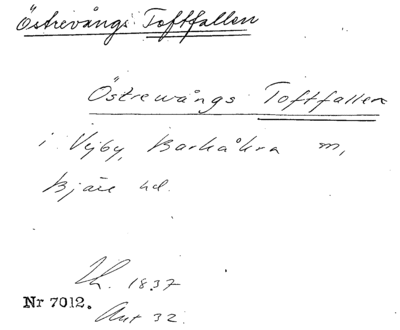 Östrevångs Toftfallen
Östrewångs Toftfallen
i Vejby, Barkåkra m,
Bjäre hd.
Lh. 1837
Nr 7012.
Akt 32.